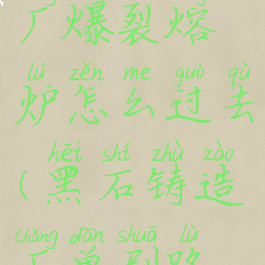 厂爆裂熔
lú zěn me guò qù
炉怎么过去
hēi shí zhù zào
（黑石铸造
chǎng dān shuā lù
厂单刷路